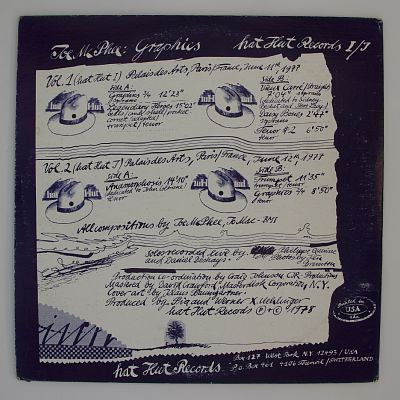 Joe McPhee: Graphics
hat Hut Records I/J
Vol. 1 (hat Hut I) Palais des Arts, Paris/France, June 11th, 1977
Side A:
Graphics 3/4 12'23"
soprano
Legendary Heroes 15'02"
trumpet/tenor
Side B:
Vieux Carré/straight
7'04" soprano
(dedicated to Sidney
Bechet and Steve Lacy)
2'47"
soprano
Tenor 6'50"
tenor
Vol. 2 (hat Hut J) Palais des Arts, Paris/France, June 12th, 1977
Side A:
Anamorphosis
dedicated to John Coltrane
tenor
Side B:
Trumpet 11'35"
trumpet/tenor
Graphics 3/4 8'50"
tenor
All compositions by Joe McPhee, Joe Mac-BMI
Solos recorded live by Philippe
and Daniel Deshays. Photos by Jim
Production co-ordination by Craig Johnson, CJR Productions
Mastered by David Crawford, Masterdisk Corporation, N.Y.
Cover art by Klaus Baumgärtner.
Produced by Pia and Werner X. Uehlinger
hat Hut Records Ⓟ + © 1978
printed in
USA
hat Hut Records
Box 127 West Park N.Y. 12493/USA
P.O. Box 461 4106 Therwil/SWITZERLAND